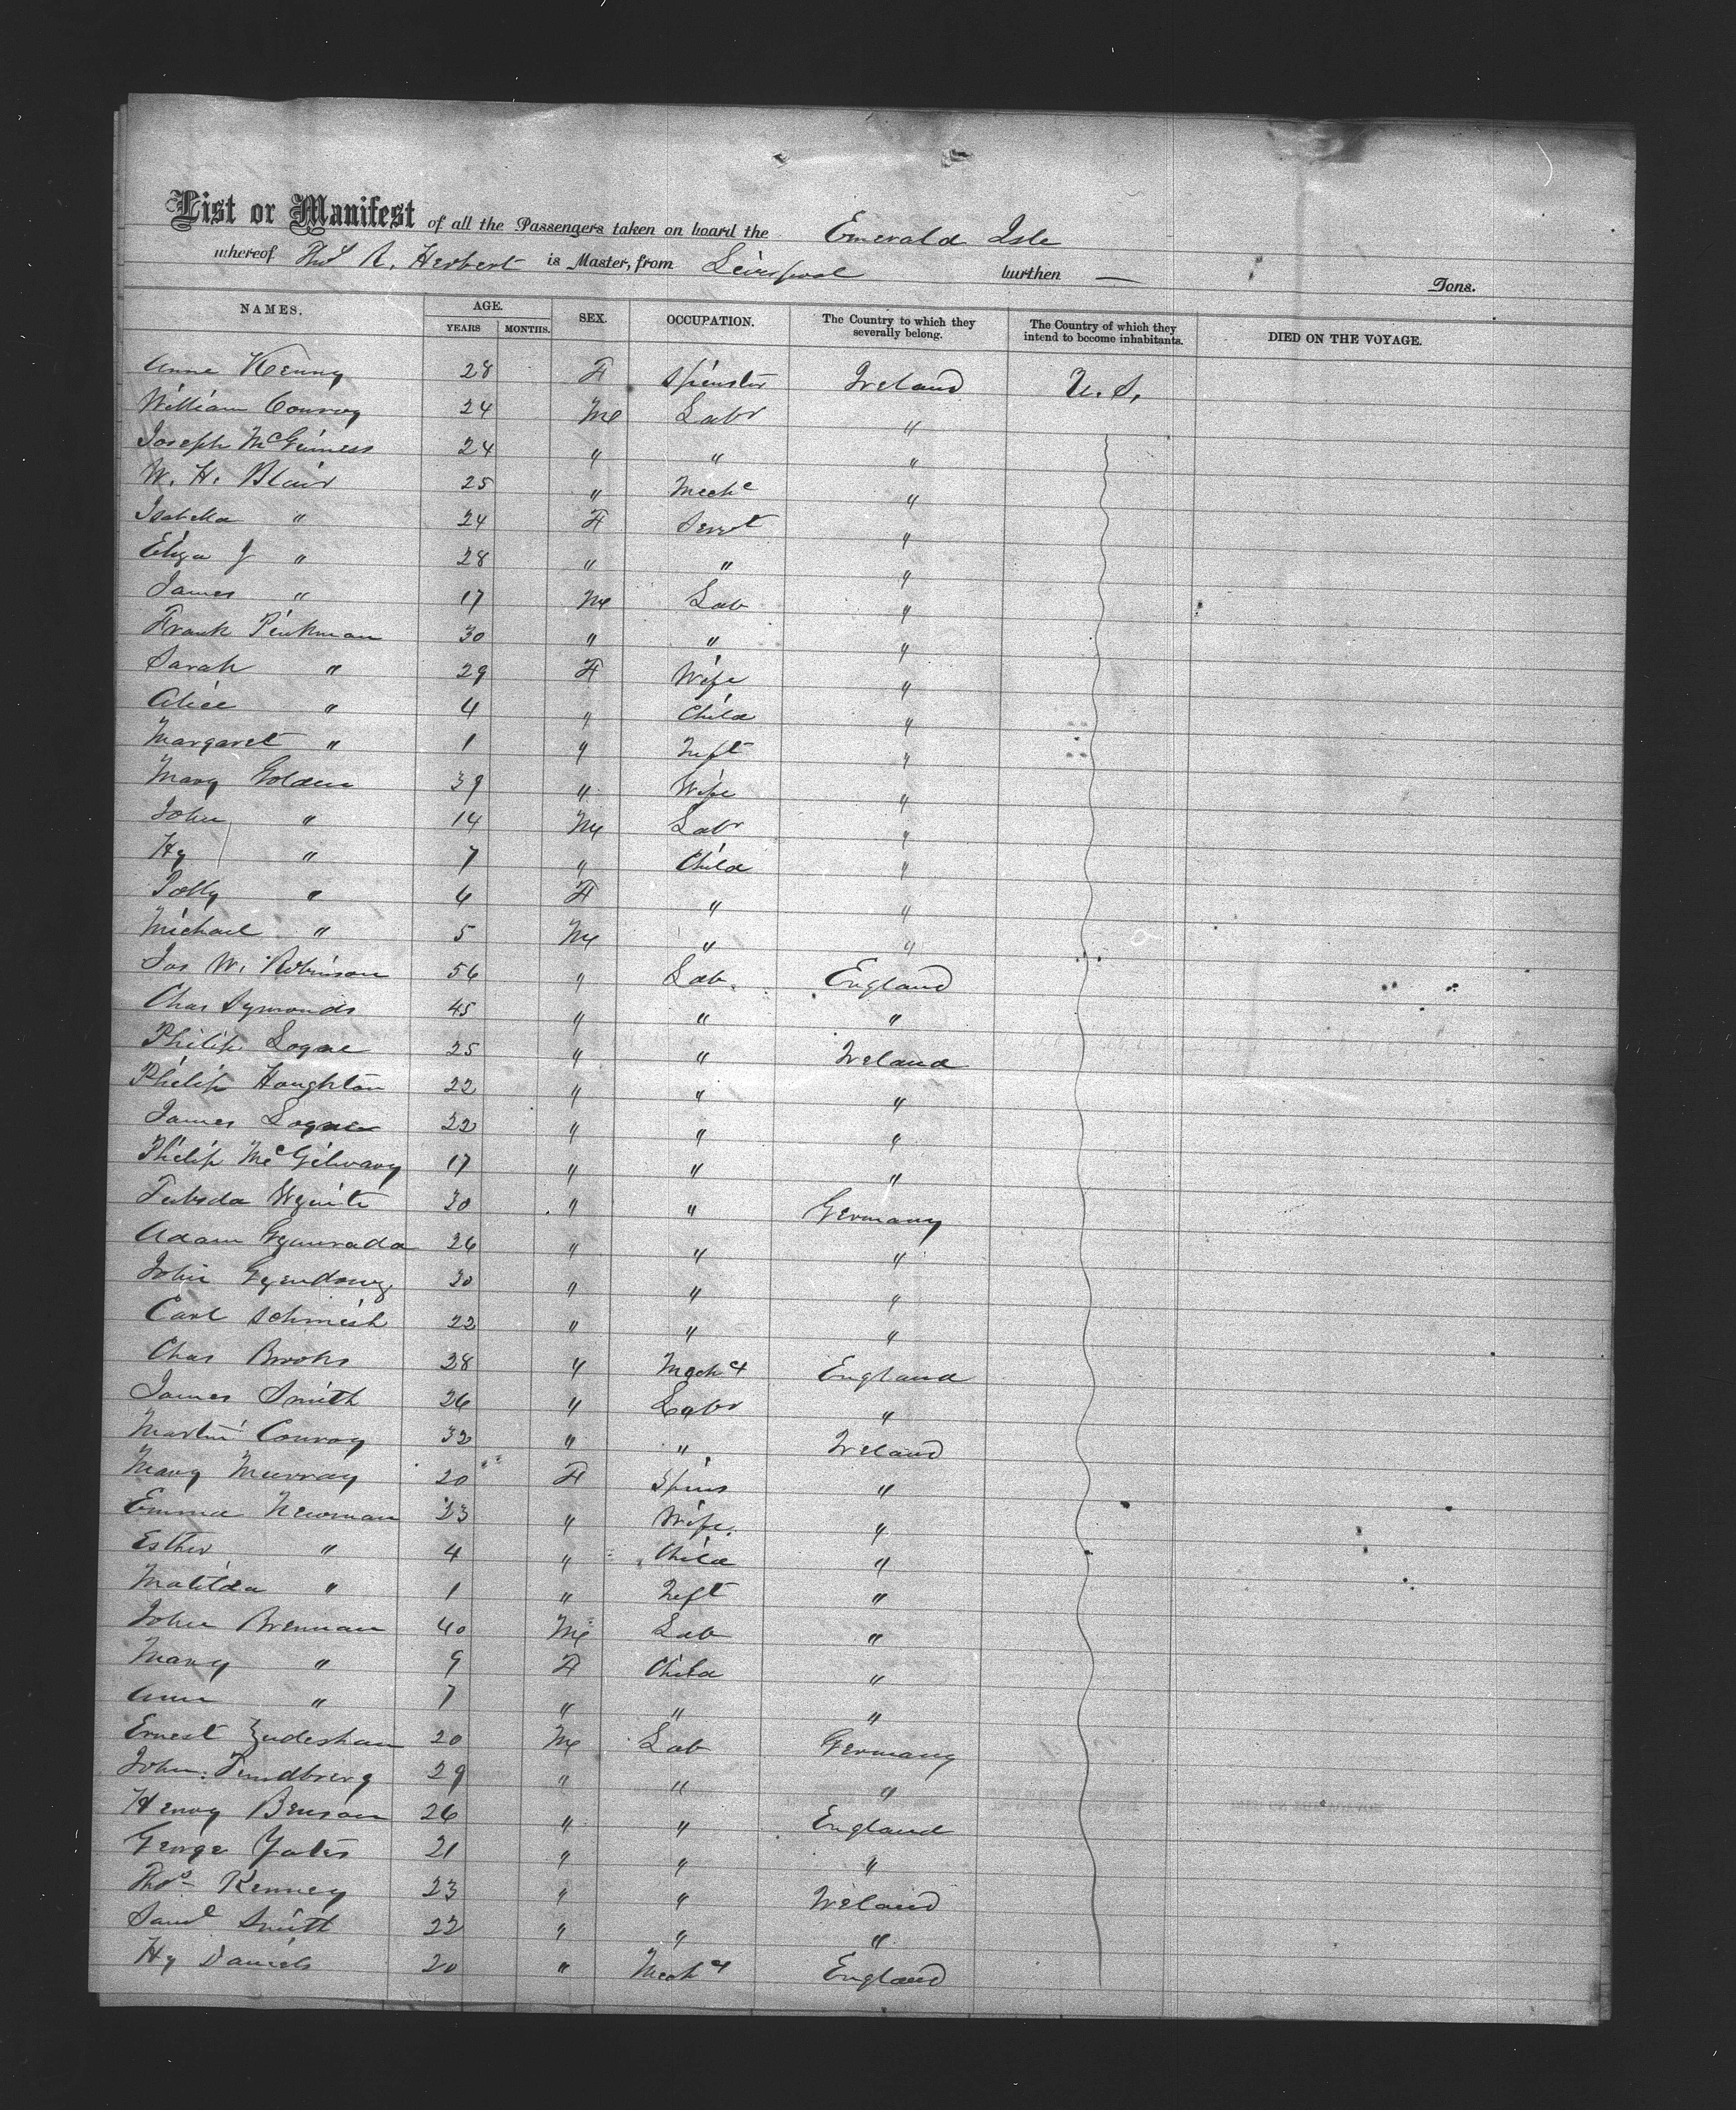 List or Manifest of all the Passengers taken on board the Emerald Isle
whereof Thos A. Herbert is Master, from Liverpool burthen — Tons.
NAMES. AGE. SEX. OCCUPATION. The Country to which they severally belong. The Country of which they intend to become inhabitants. DIED ON THE VOYAGE.
YEARS MONTHS.
Anne Kenny 28 F Spinster Ireland U.S.
William Conroy 24 M Labr "
Joseph McGuiness 24 " " "
W. H. Blair 25 " Mechc "
Isabella " 24 F Servt "
Eliza J " 28 " " "
James " 17 M Lab "
Frank Pinkman 30 " " "
Sarah " 29 F Wife "
Alice " 4 " Child "
Margaret " 1 " Inft "
Mary Golden 39 " Wife "
John " 14 M Labr "
Hy " 7 " Child "
Polly " 6 F " "
Michael " 5 M " "
Jos W. Robinson 56 " Lab. England
Chas Symonds 45 " " "
Philip Logue 25 " " Ireland
Philip Houghton 22 " " "
James Logue 22 " " "
Philip McGilwary 17 " " "
30 " " Germany
Adam 26 " " "
John 30 " " "
Carl Schmish 22 " " "
Chas Brooks 28 " Mech England
James Smith 26 " Labr "
Martin Conroy 32 " " Ireland
Mary Murray 20 F Spins "
Emma Newman 23 " Wife. "
Esther " 4 " Child "
Matilda " 1 " Inft "
John Brennan 40 M Lab "
Mary " 9 F Child "
Ann " 7 " " "
Ernest 20 M Lab Germany
John 29 " " "
Henry Benson 26 " " England
George Yates 21 " " "
Thos Kenney 23 " " Ireland
Saml Smith 22 " " "
Hy Daniels 20 " Mech England